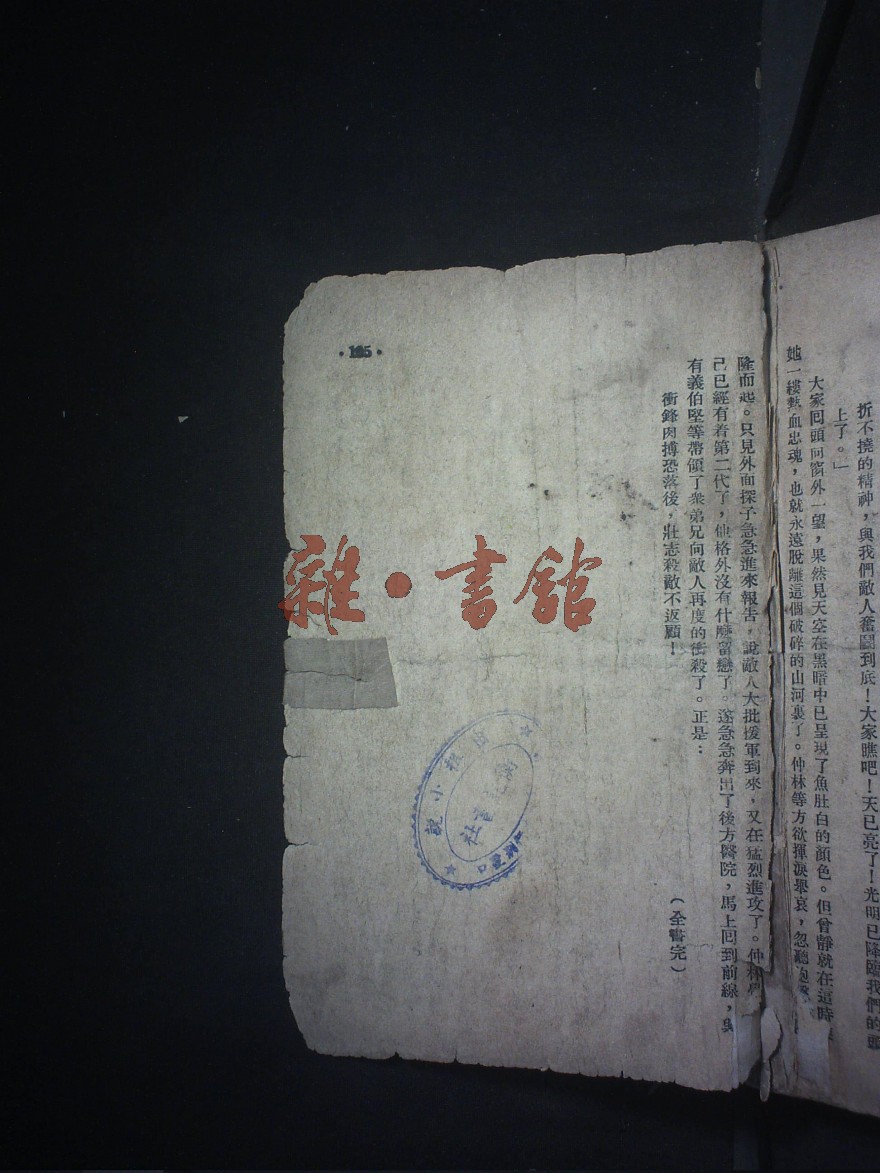 折不撓的精神，與我們敵人奮鬪到底！大家瞧吧！天已亮了！光明已降臨我們的頭
上了。」
大家回頭向窗外一望，果然見天空在黑暗中已呈現了魚肚白的顏色。但曾靜就在這時
她一縷熱血忠魂，也就永遠脫離這個破碎的山河裏了。仲林等方欲揮淚舉哀，忽聽炮聲
隆而起。只見外面探子急急進來報告，說敵人大批援軍到來，又在猛烈進攻了。仲林
己已經有着第二代了，他格外沒有什麼留戀了。遂急急奔出了後方醫院，馬上回到前線，
有義伯堅等帶領了衆弟兄向敵人再度的衝殺了。正是：
衝鋒肉搏恐落後，壯志殺敵不返顧！
（全書完）
·195·
雜·書館
說小租
書社